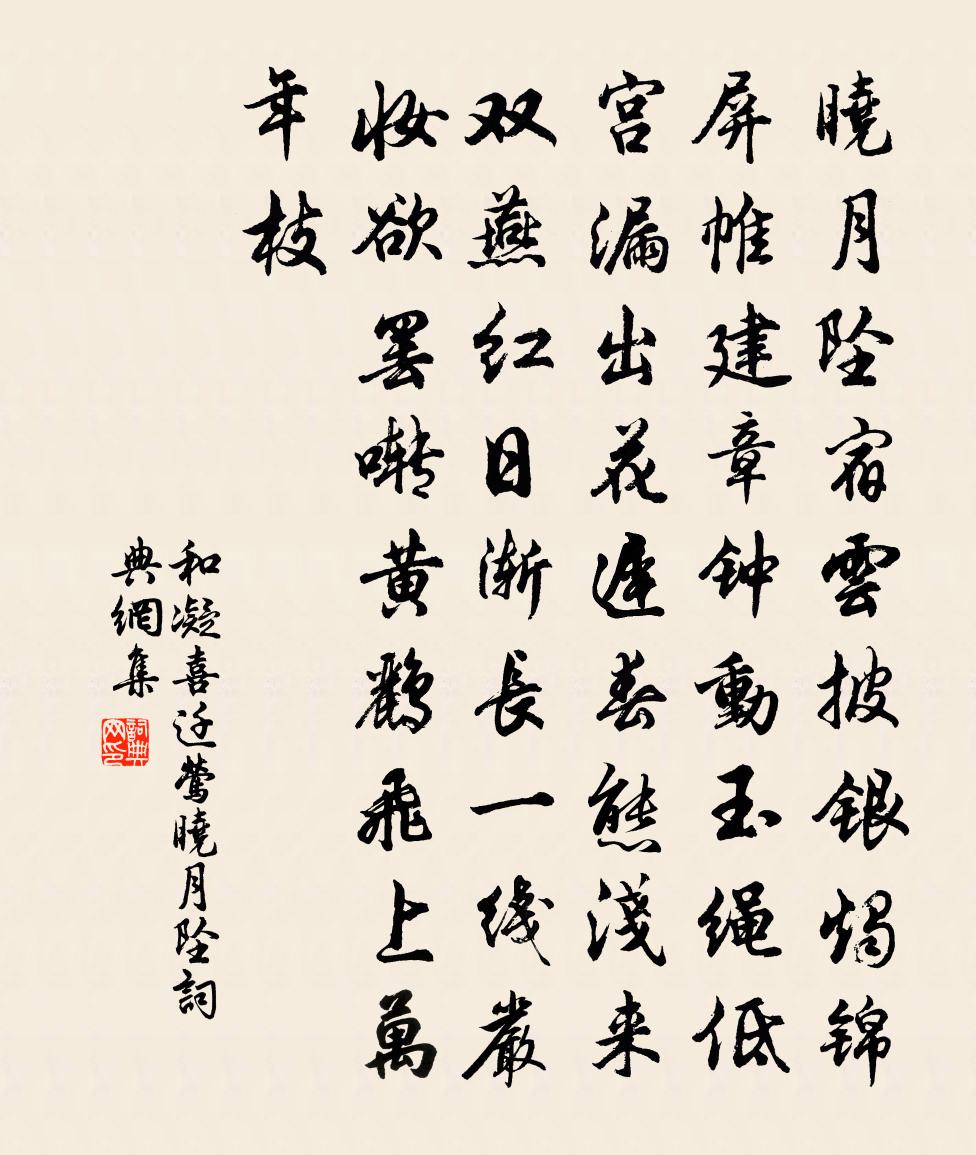 曉月坠宿雲披銀燭锦
屏帷建章钟動玉绳低
宫漏出花遲春態淺来
双燕红日渐長一线嚴
妆欲罢啭黄鹂飛上萬
年枝
和凝喜迁鶯曉月坠詞
典網集
詞典
网印